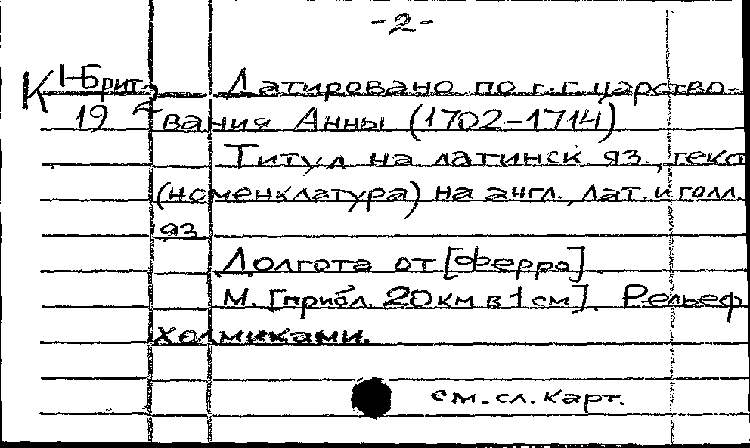 -2-
К 1-Брит. 2 Датировано по г.г. царство-
19 вания Анны (1702-1714)
Титул на латинск яз., текст
(номенклатура) на англ., лат. и голл.
яз.
Долгота от [Ферро]
М. [прибл. 20 км в 1 см]. Рельеф
холмиками.
см. сл. карт.